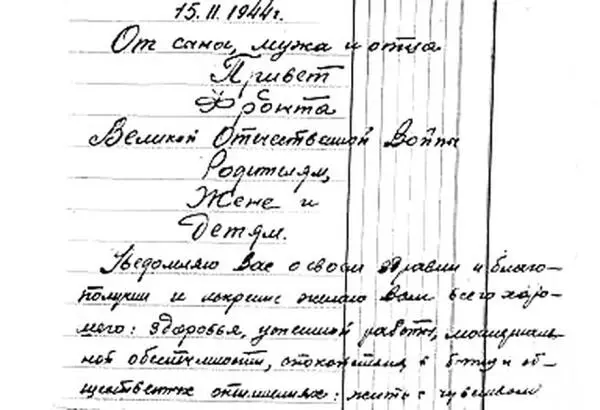 15.II.1944г.
От сына, мужа и отца
Привет
Фронта
Великой Отечественной Войны
Родителям,
Жене и
Детям.
Уведомляю Вас о своём здравии и благо-
получии и искренне желаю Вам всего хоро-
шего: здоровья, успешной работы, материаль-
ной обеспеченности, спокойствия в быту и об-
щественных отношениях: жить с чувством